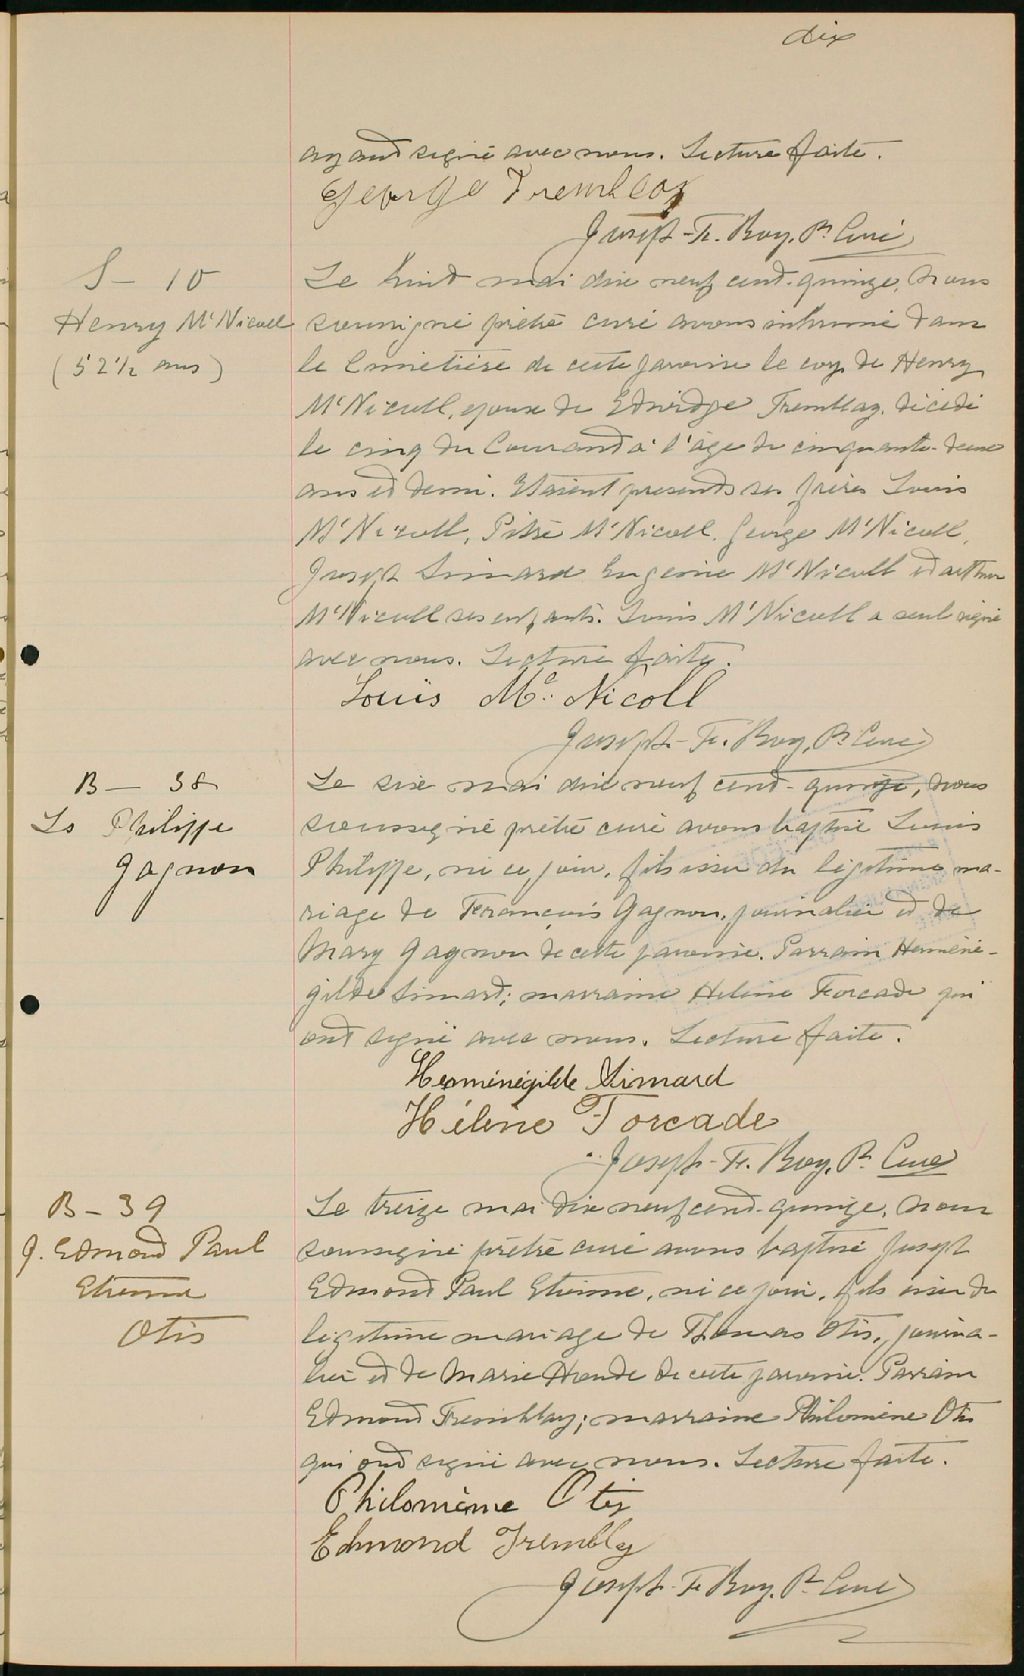 dix
ayant signé avec nous. Lecture faite.
George Tremblay
Joseph-Fr. Roy, Ptre Curé
S – 10
Henry McNicoll
(52 1/2 ans)
Le huit mai dix neuf cent-quinze, nous
soussigné prêtre curé avons inhumé dans
le Cimetière de cette paroisse le corps de Henry
McNicoll, époux de Edwidge Tremblay, décédé
le cinq du Courant à l'âge de cinquante-deux
ans et demi. Etaient présents ses frères Louis
McNicoll, Pitre McNicoll, George McNicoll,
Joseph Simard Eugenie McNicoll et arthur
McNicoll ses enfants. Louis McNicoll a seul signé
avec nous. Lecture faite.
Louis Mc Nicoll
Joseph-Fr. Roy, Ptre Curé
B – 38
Ls Philippe
Gagnon
Le six mai dix neuf cent-quinze, nous
soussigné prêtre curé avons baptisé Louis
Philippe, né ce jour, fils issu du légitime ma-
riage de François Gagnon, journalier et de
Mary Gagnon de cette paroisse. Parrain Herméné-
gilde Simard; marraine Hélène Forcade qui
ont signé avec nous. Lecture faite.
Herménégilde Simard
Hélène Forcade
Joseph-Fr. Roy, Ptre Curé
B – 39
J. Edmond Paul
Etienne
Otis
Le treize mai dix neuf cent-quinze, nous
soussigné prêtre curé avons baptisé Joseph
Edmond Paul Etienne, né ce jour, fils issu du
légitime mariage de Thomas Otis, journa-
lier et de Marie de cette paroisse. Parrain
Edmond Tremblay; marraine Philomène Otis
qui ont signé avec nous. Lecture faite.
Philomène Otis
Edmond Trembly
Joseph-Fr Roy, Ptre Curé